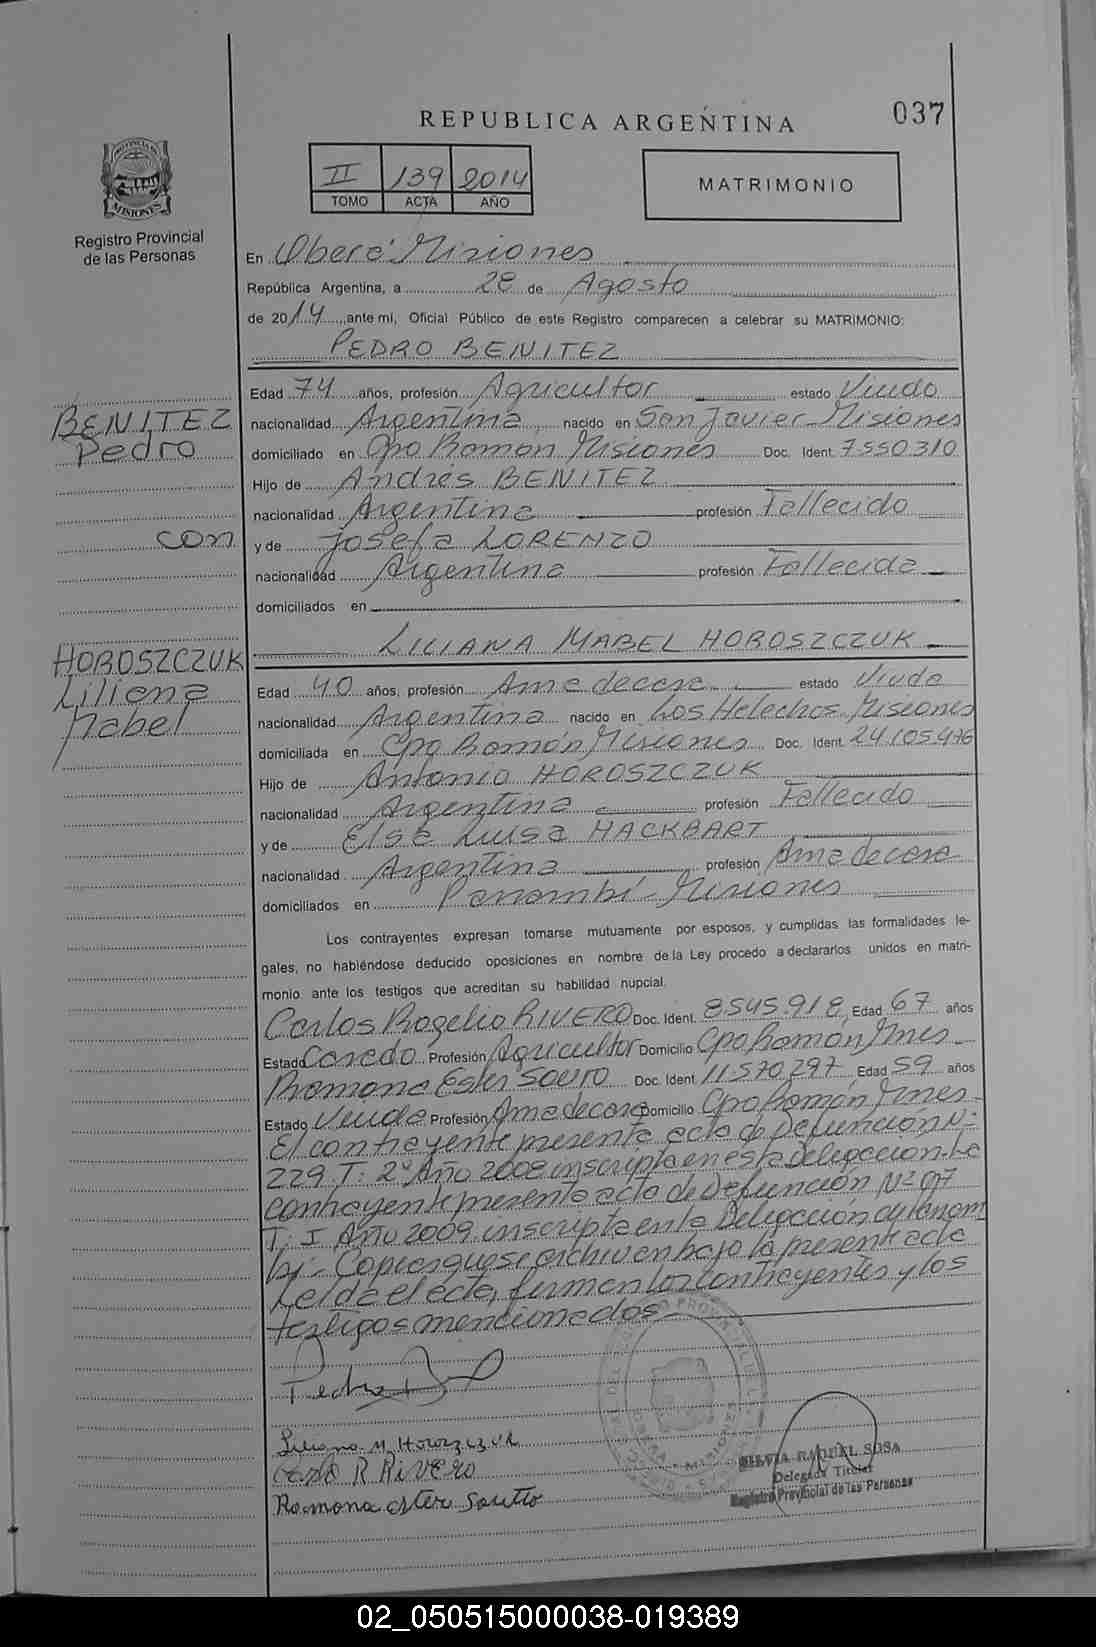 037
REPUBLICA ARGENTINA
II 139 2014
TOMO ACTA AÑO
MATRIMONIO
PROVINCIA DE
MISIONES
Registro Provincial
de las Personas
En Oberá Misiones
República Argentina, a 28 de Agosto
de 2014, ante mi, Oficial Público de este Registro comparecen a celebrar su MATRIMONIO:
PEDRO BENITEZ
BENITEZ
Pedro
con
HOROSZCZUK
Liliana
Mabel
Edad 74 años, profesión Agricultor estado Viudo
nacionalidad Argentina nacido en San Javier - Misiones
domiciliado en Cpo Ramón Misiones Doc. Ident. 7.550.310
Hijo de Andrés BENITEZ
nacionalidad Argentina profesión Fallecido
y de Josefa LORENZO
nacionalidad Argentina profesión Fallecida
domiciliados en
LILIANA MABEL HOROSZCZUK
Edad 40 años, profesión Ama de casa estado Viuda
nacionalidad Argentina nacido en Los Helechos - Misiones
domiciliada en Cpo Ramón Misiones Doc. Ident. 24.105.476
Hijo de Antonio HOROSZCZUK
nacionalidad Argentina profesión Fallecido
y de Elsa Luisa HACKBART
nacionalidad Argentina profesión Ama de casa
domiciliados en Panambí - Misiones
Los contrayentes expresan tomarse mutuamente por esposos, y cumplidas las formalidades le-
gales, no habiéndose deducido oposiciones en nombre de la Ley procedo a declararlos unidos en matri-
monio ante los testigos que acreditan su habilidad nupcial.
Carlos Rogelio RIVERO Doc. Ident. 8.545.918 Edad 67 años
Estado Casado Profesión Agricultor Domicilio Cpo Ramón Mnes -
Ramona Ester SOUTO Doc. Ident. 11.570.297 Edad 59 años
Estado Viuda Profesión Ama de casa Domicilio Cpo Ramón Mnes -
El contrayente presenta acta de Defunción Nº
229. T: 2º Año 2008 inscripta en esta Delegación. La
contrayente presenta acta de Defunción Nº 07
T: I Año 2009 inscripta en la Delegación de Panam
bí - Copias que se archivan bajo la presente acta
Leída el acta, firman los contrayentes y los
testigos mencionados
Pedro
Liliana M Horoszczuk
R RIVERO
Ramona Ester Soutto
SILVIA RAQUEL SOSA
Delegada Titular
Registro Provincial de las Personas
02_050515000038-019389